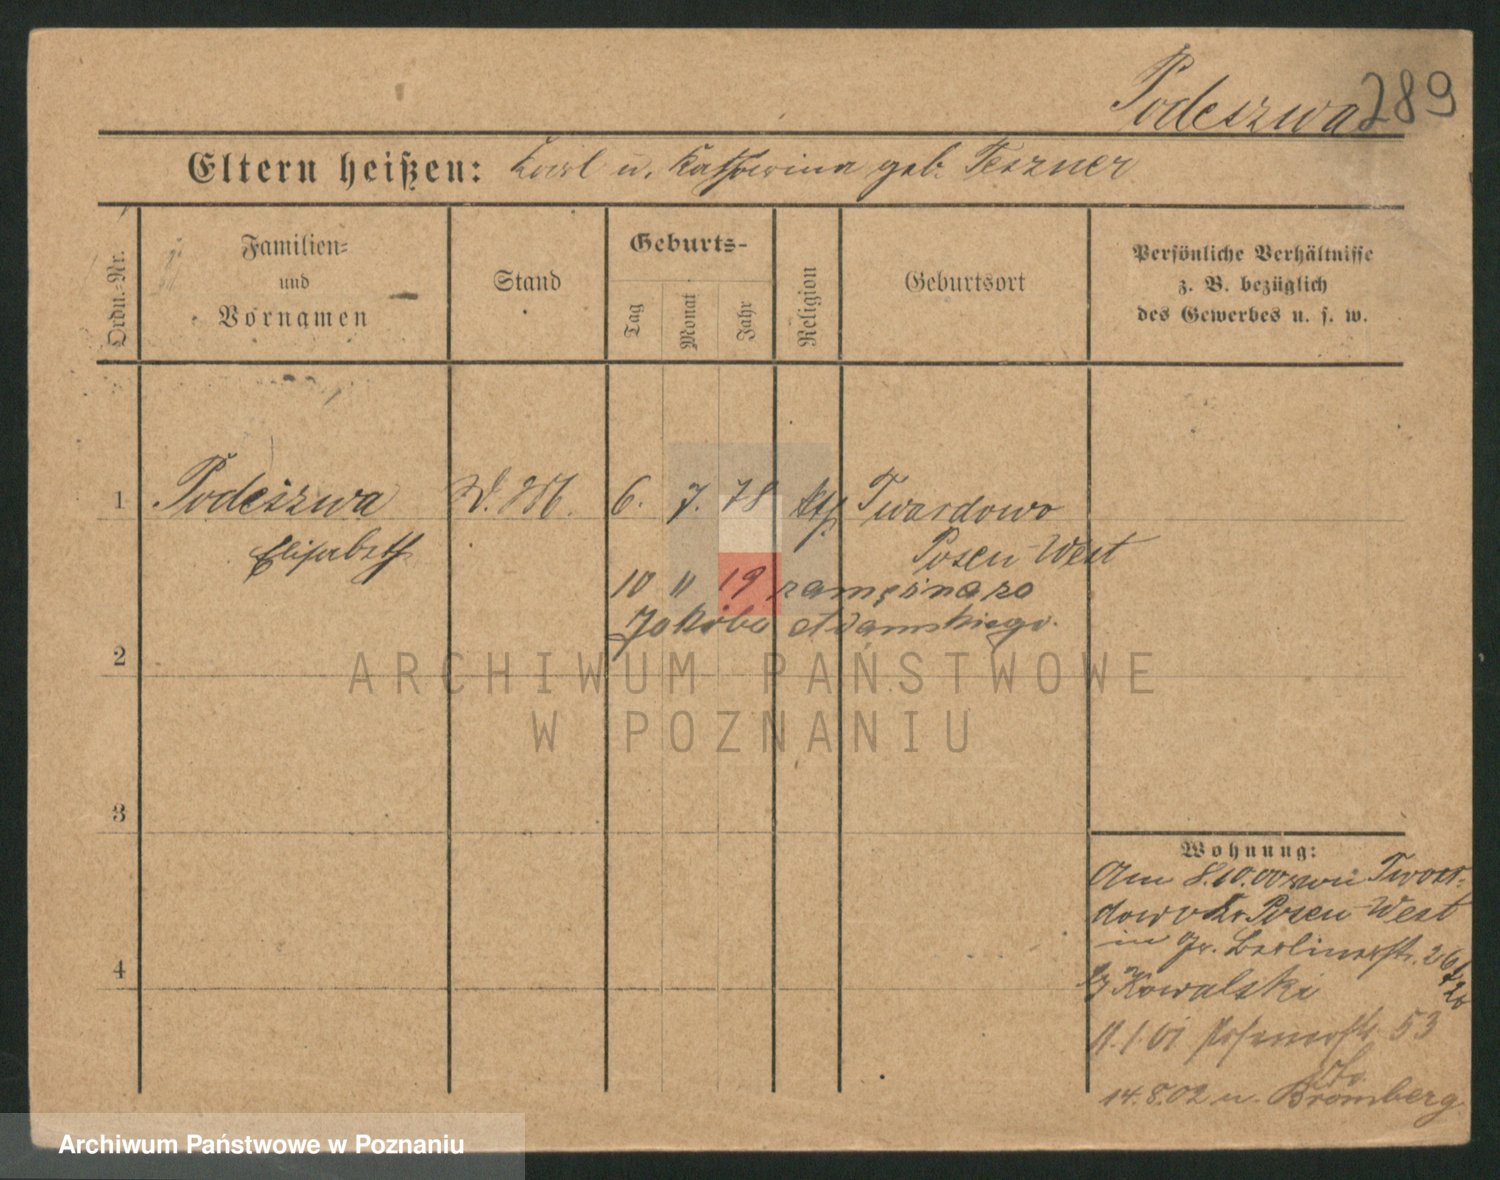 Podeszwa 289
Eltern heißen: Karl u. Katharina geb. Teszner
Ordn.-Nr.
Familien-
und
Vornamen
Stand
Geburts-
Tag
Monat
Jahr
Religion
Geburtsort
Persönliche Verhältnisse
z. B. bezüglich
des Gewerbes u. s. w.
1 Podeszwa 6. 7. 78 kth Twardowo
Elisabeth Posen West
10 " 19 zamężna za
Jakóba Adamskiego.
2
3
4
Wohnung:
Am 8.10.00 von Twar-
dowo Kr. Posen West
in Gr. Berlinerstr. 26
b/ Kowalski
11.1.01 Posenerstr. 53
14.8.02 n. Bromberg
ARCHIWUM PAŃSTWOWE
W POZNANIU
Archiwum Państwowe w Poznaniu